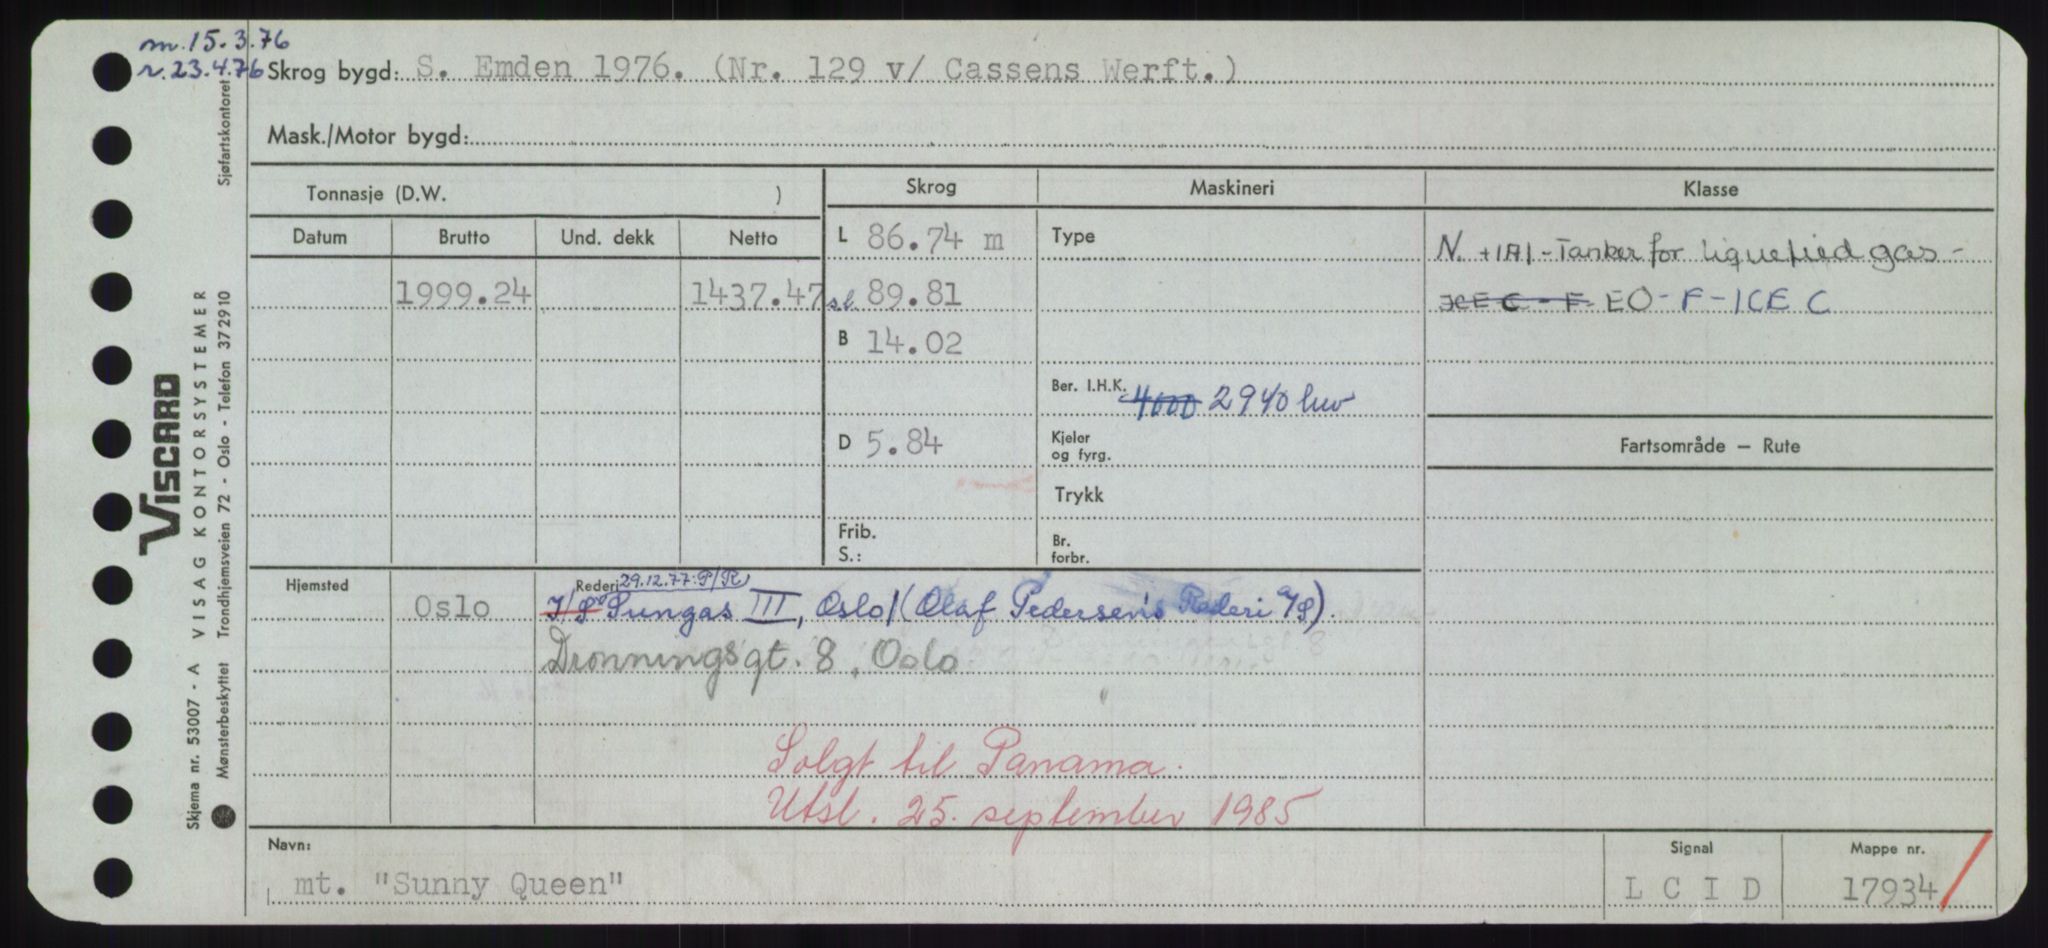 m.15.3.76
r.23.4.76
Skrog bygd: S. Emden 1976. (Nr. 129 v/ Cassens Werft.)
Mask./Motor bygd:
Tonnasje (D.W. )
Skrog
Maskineri
Klasse
Datum
Brutto
Und. dekk
Netto
L 86.74 m
Type
N. +1A1-Tanker for liquefied gas-
1999.24
1437.47
sl. 89.81
ICE C - F EO-F-ICE C
B 14.02
Ber. I.H.K. 4000 2940 kw
D 5.84
Kjeler
og fyrg.
Fartsområde — Rute
Trykk
Frib.
S.:
Br.
forbr.
Hjemsted
Rederi 29.12.77: P/R
Oslo
I/S Sungas III, Oslo/(Olaf Pedersen's Rederi A/S).
Dronningsgt. 8, Oslo
Solgt til Panama.
Utsl. 25. september 1985
Navn:
Signal
Mappe nr.
mt. "Sunny Queen"
L C I D
17934
Sjøfartskontoret
VISCARD
VISAG KONTORSYSTEMER
Skjema nr. 53007 - A
Mønsterbeskyttet Trondhjemsveien 72 - Oslo - Telefon 372910